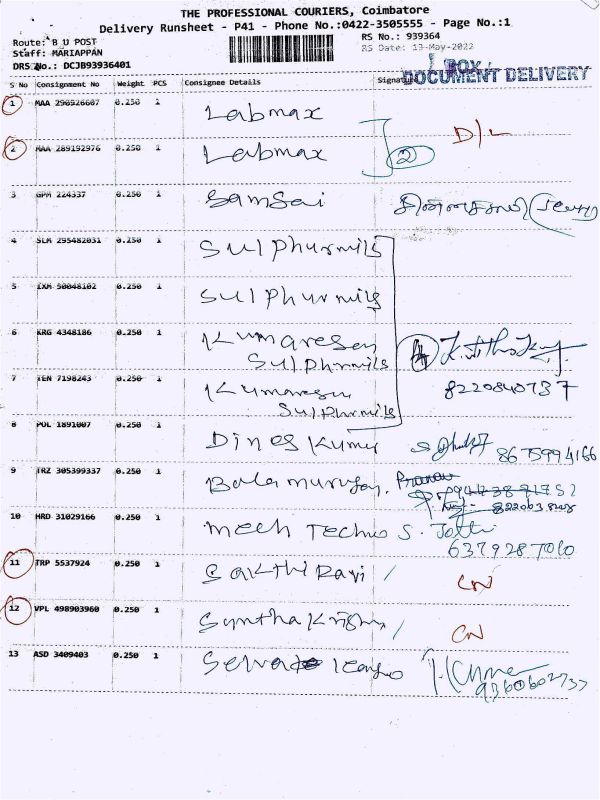 THE PROFESSIONAL COURIERS, Coimbatore
Delivery Runsheet - P41 - Phone No.:0422-3505555 - Page No.:1
Route: B U POST RS No.: 939364
Staff: MARIAPPAN RS Date: 13-May-2022
DRS No.: DCJB93936401
BOX
DOCUMENT DELIVERY
S No Consignment No Weight PCS Consignee Details Signature
1 MAA 290926607 0.250 1 Labmax
D/L
2 MAA 289192976 0.250 1 Labmax 2
3 GPM 224337 0.250 1 Samsai
4 SLM 295482031 0.250 1 Sulphurmils
5 IXM 50048102 0.250 1 Sulphurmils
6 KRG 4348186 0.250 1 Kumaresan
Sulphrmils
7 TEN 7198243 0.250 1 Kumaresan 8220840737
Sulphrmils
8 POL 1891007 0.250 1 Dines Kumar 8675994166
9 TRZ 305399337 0.250 1 Balamurugan. Pranav
10 HRD 31029166 0.250 1 Mech Techno S. Jothi
6379287060
11 TRP 5537924 0.250 1 Sakthi Ravi / CN
12 VPL 498903960 0.250 1 Krishna / CN
13 ASD 3409403 0.250 1
9360602737